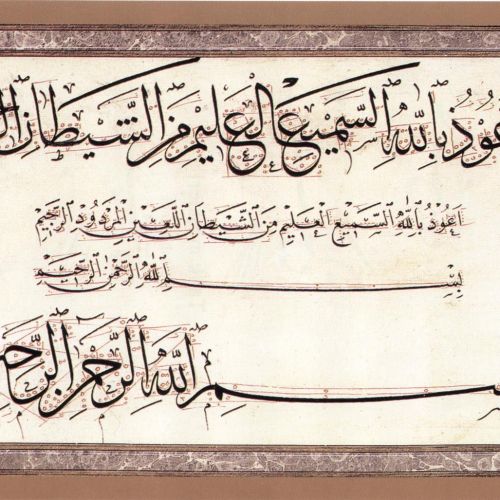 عوذ بالله السميع العليم من الشيطان ال
اعوذ بالله السميع العليم من الشيطان اللعين المردود الرجيم
بسم الله الرحمن الرحيم
سم الله الرحمن الرحيم